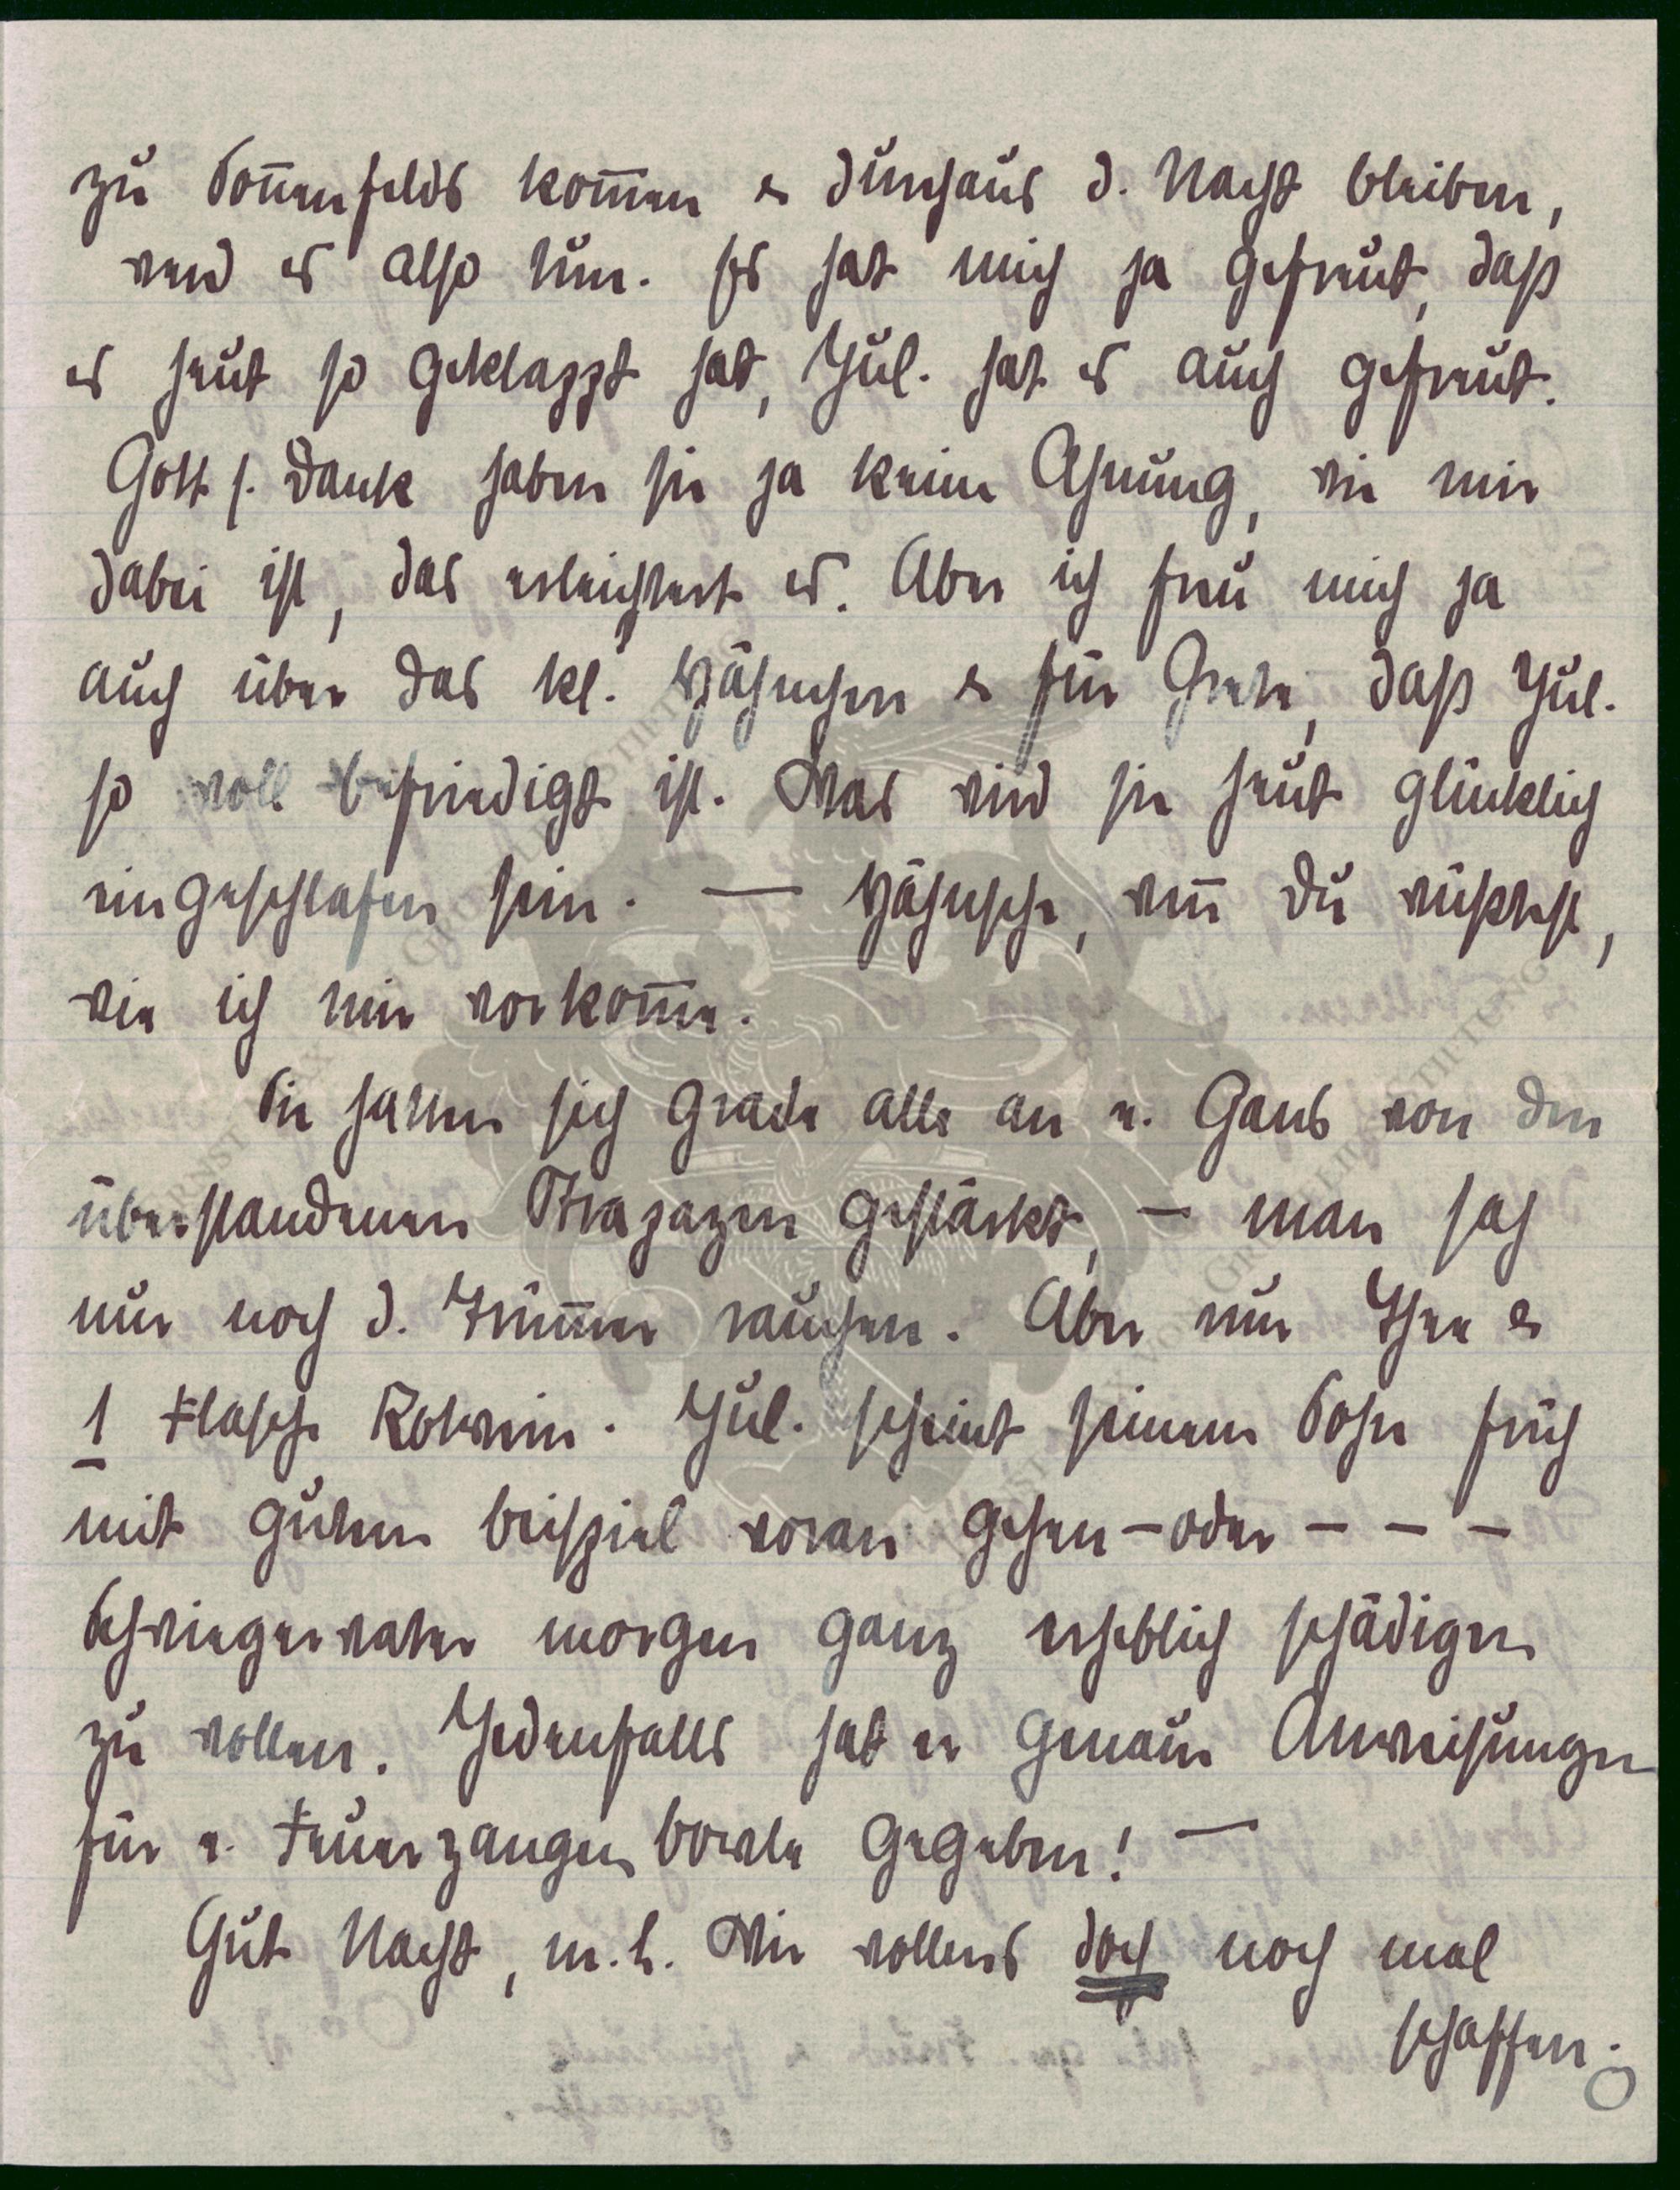 zu Sonnenfelds kom̅en & durchaus d. Nacht bleiben,
werd es also tun. Es hat mich ja gefreut, daß
es heut so geklappt hat, Jul. hat es auch gefreut.
Gott s. Dank haben sie ja keine Ahnung, wie mir
dabei ist, das erleichtert es. Aber ich freu mich ja
auch über das kl. Hähnchen & für Grete, daß Jul.
so voll befriedigt ist. Was wird sie heut glücklich
eingeschlafen sein. — Hähnsche, wen̅ Du wüßtest,
wie ich mir vorkom̅e.
Sie hatten sich grade alle an e. Gans von den
überstandenen Strapazen gestärkt, — man sah
nur noch d. Trüm̅er rauchen. Aber nur Thee &
1 Flasche Rotwein. Jul. scheint seinem Sohn früh
mit gutem Beispiel voran gehen – oder – – –
Schwiegervater morgen ganz erheblich schädigen
zu wollen. Jedenfalls hat er genaue Anweisungen
für e. Feuerzangenbowle gegeben! —
Gut Nacht, m. L. Wir wollens doch noch mal
schaffen.